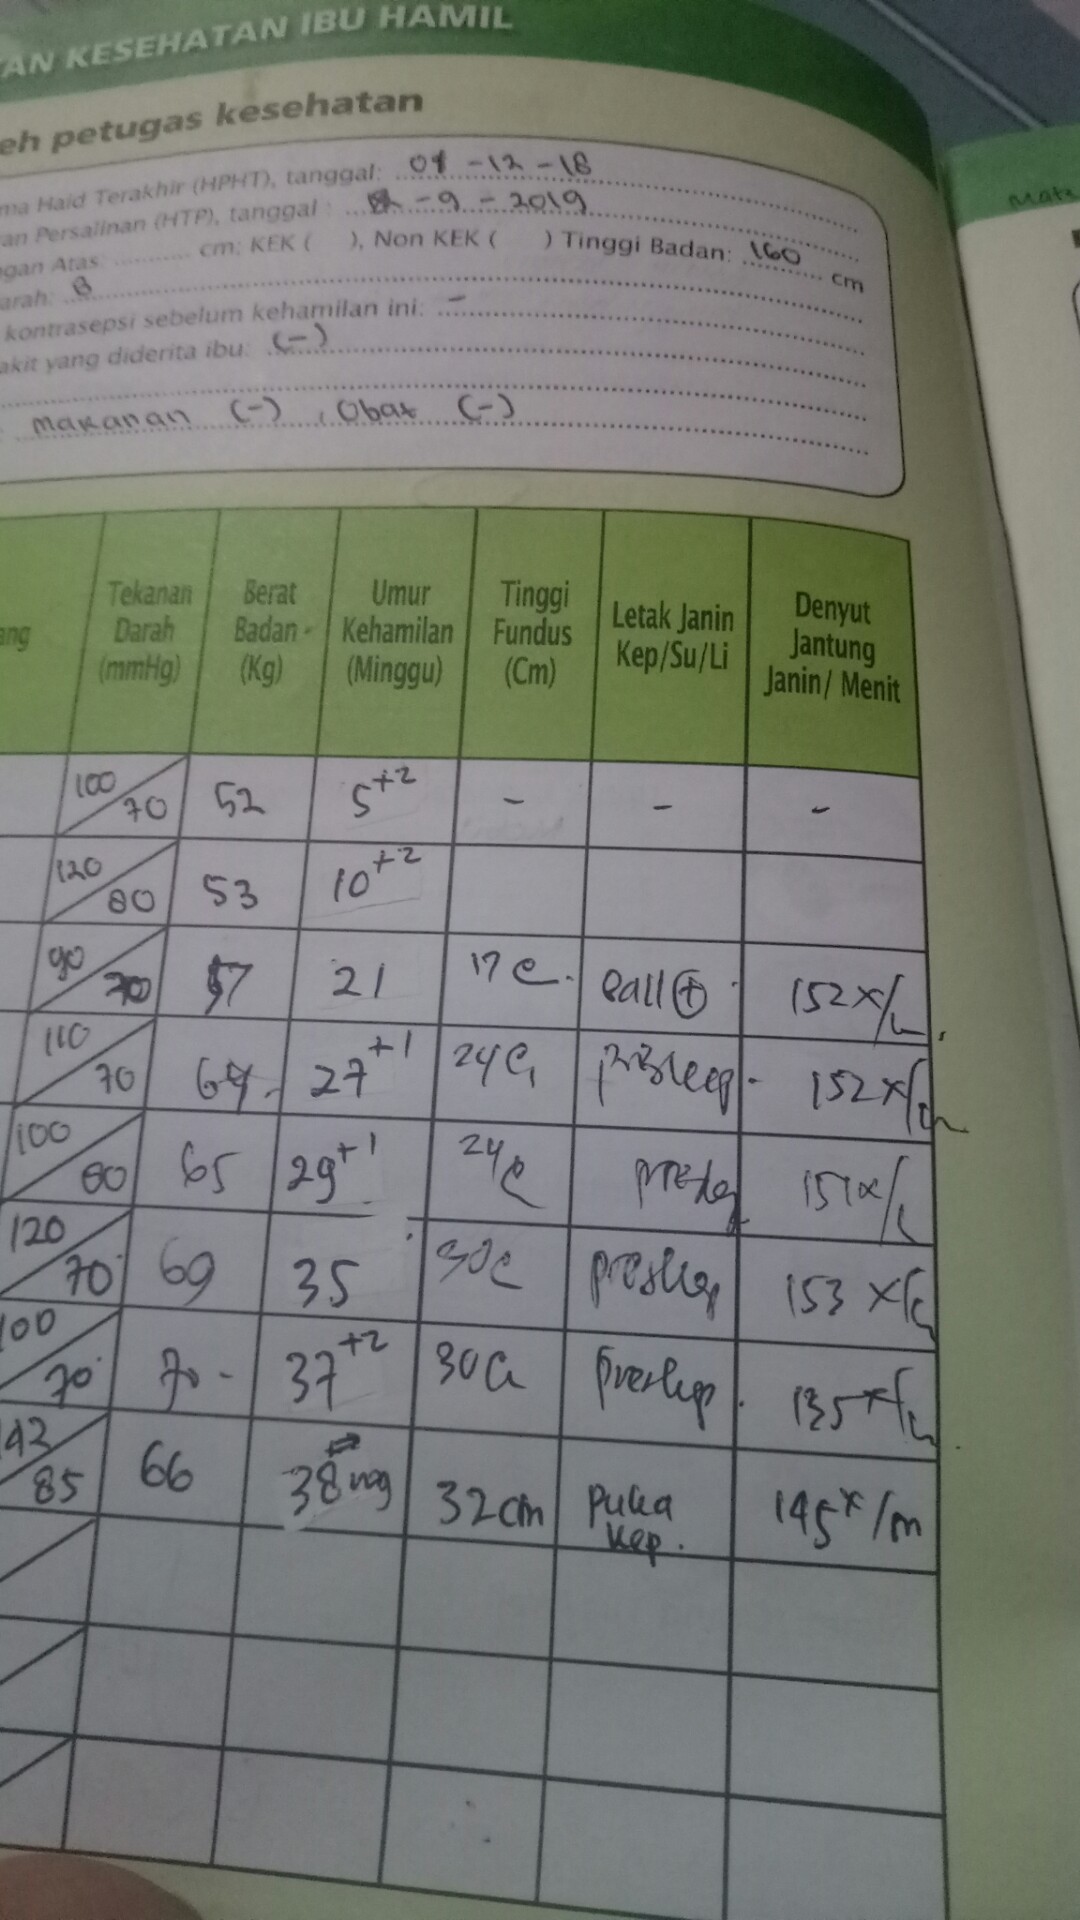 AN KESEHATAN IBU HAMIL
eh petugas kesehatan
ma Haid Terakhir (HPHT), tanggal: -12-18
an Persalinan (HTP), tanggal : -9-2019
ngan Atas: cm; KEK ( ), Non KEK ( ) Tinggi Badan: 160 cm
arah: B
kontrasepsi sebelum kehamilan ini: -
akit yang diderita ibu: (-)
makanan (-), Obat (-)
ang
Tekanan Darah (mmHg)
Berat Badan (Kg)
Umur Kehamilan (Minggu)
Tinggi Fundus (Cm)
Letak Janin Kep/Su/Li
Denyut Jantung Janin/ Menit
100/70 52 5+2 - - -
120/80 53 10+2
90/70 57 21 17 ball (+) 152x/
110/70 27+1 24 152x/
100/60 65 29+1 24 151x/
120/70 69 35 30 preskep 153 x/
100/70 70 37+2 30 preskep 135x/
85 66 38 mg 32cm puka kep. 145x/m
Mate